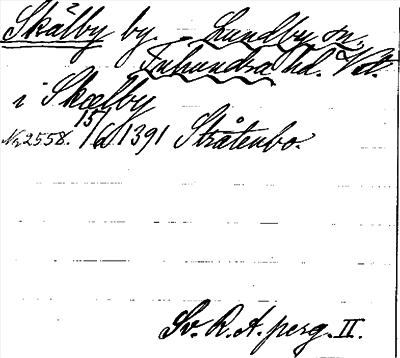 Skälby by. - Lundby sn,
Tuhundra hd. Vstm.
i Skælby
Nr 2558. 15/6 1391 Stråtenbo.
Sv. R. A. perg. II.